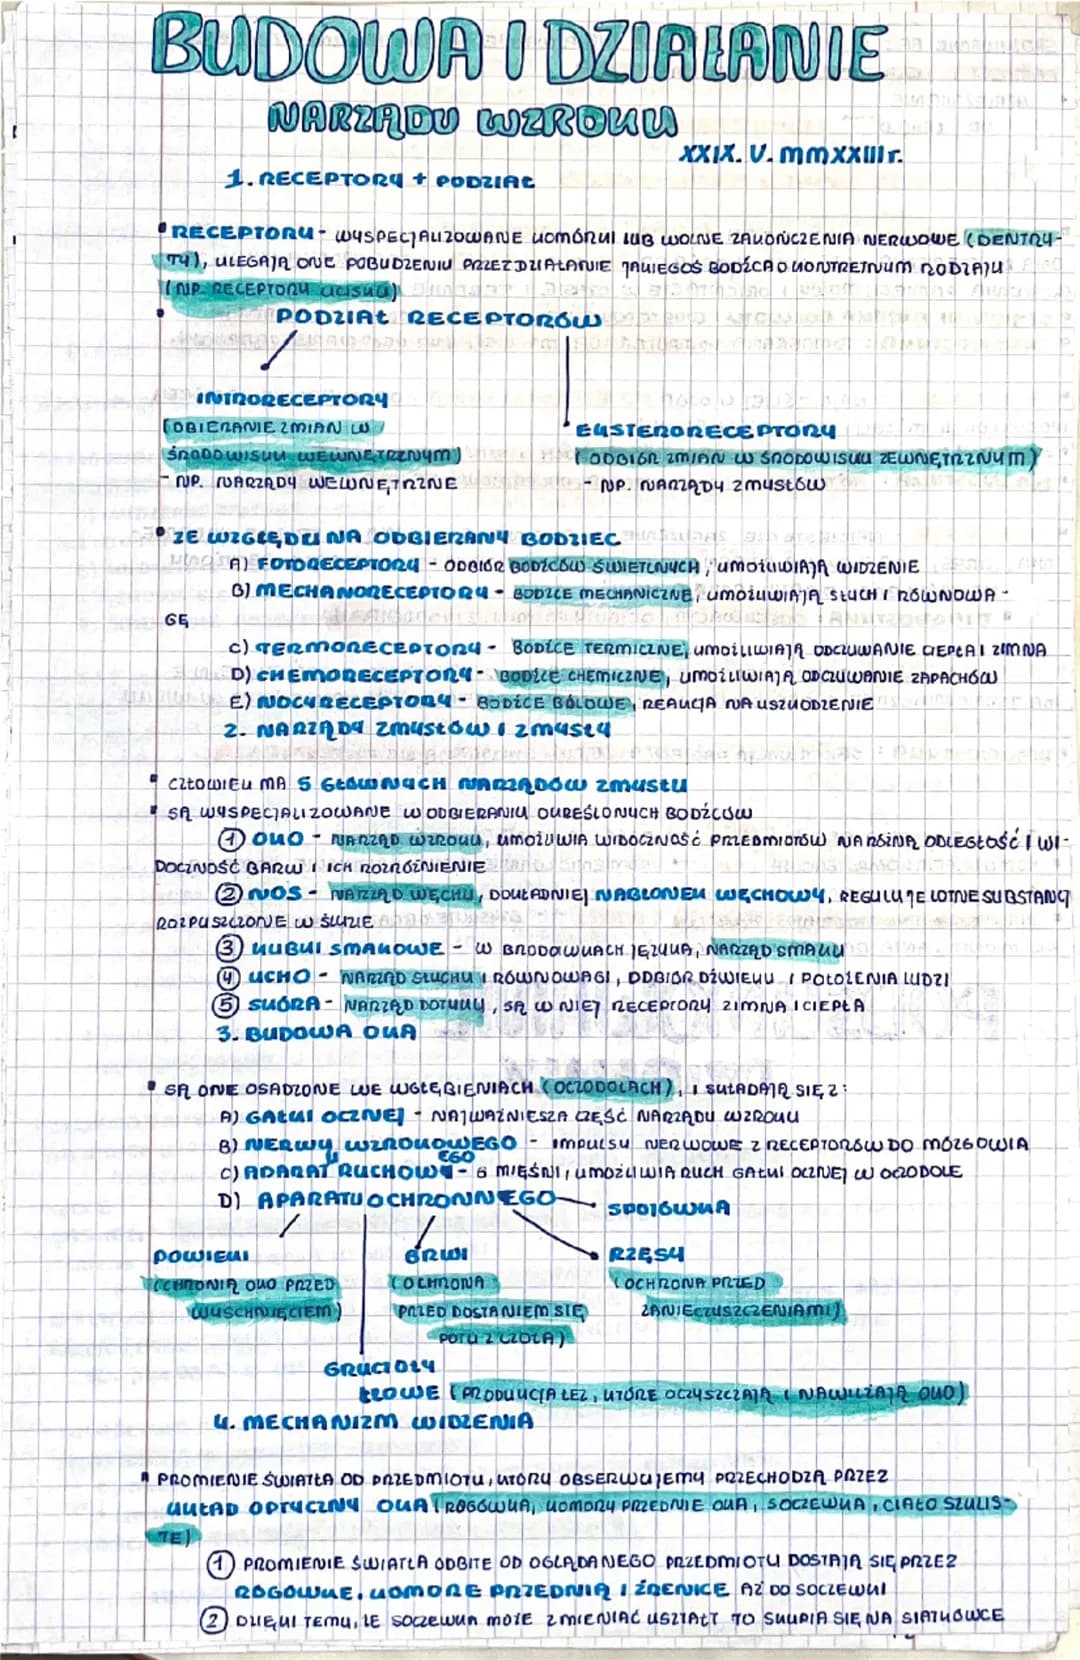 BUDOWA I DZIAŁANIE
NARZĄDU WZROKU
XXIX. V. MMXXIII r.
1. RECEPTORY + PODZIAŁ
• RECEPTORY - WYSPECJALIZOWANE KOMÓRKI LUB WOLNE ZAKOŃCZENIA NERWOWE (DENTRY-
TY), ULEGAJĄ ONE POBUDZENIU PRZEZ DZIAŁANIE JAKIEGOŚ BODŹCA O KONTRETNYM RODZAJU
(NP. RECEPTORY UCISKU)
• PODZIAŁ RECEPTORÓW
INTRORECEPTORY
(OBIERANIE ZMIAN W
ŚRODOWISKU WEWNĘTRZNYM)
- NP. NARZĄDY WEWNĘTRZNE
EKSTERORECEPTORY
(ODBIÓR ZMIAN W ŚRODOWISKU ZEWNĘTRZNYM)
- NP. NARZĄDY ZMYSŁÓW
• ZE WZGLĘDU NA ODBIERANY BODZIEC
A) FOTORECEPTORY - ODBIÓR BODŹCÓW ŚWIETLNYCH, UMOŻLIWIAJĄ WIDZENIE
B) MECHANORECEPTORY - BODŹCE MECHANICZNE, UMOŻLIWIAJĄ SŁUCH I RÓWNOWA-
GĘ
C) TERMORECEPTORY - BODŹCE TERMICZNE, UMOŻLIWIAJĄ ODCZUWANIE CIEPŁA I ZIMNA
D) CHEMORECEPTORY - BODŹCE CHEMICZNE, UMOŻLIWIAJĄ ODCZUWANIE ZAPACHÓW
E) NOCYRECEPTORY - BODŹCE BÓLOWE, REAKCJA NA USZKODZENIE
2. NARZĄDY ZMYSŁÓW I ZMYSŁY
• CZŁOWIEK MA 5 GŁÓWNYCH NARZĄDÓW ZMYSŁU
• SĄ WYSPECJALIZOWANE W ODBIERANIU OKREŚLONYCH BODŹCÓW
① OKO - NARZĄD WZROKU, UMOŻLIWIA WIDOCZNOŚĆ PRZEDMIOTÓW NA RÓŻNĄ ODLEGŁOŚĆ I WI-
DOCZNOŚĆ BARW I ICH ROZRÓŻNIENIE
② NOS - NARZĄD WĘCHU, DOKŁADNIEJ NABŁONEK WĘCHOWY, REGULUJE LOTNE SUBSTANCJ
ROZPUSZCZONE W ŚLUZIE
③ KUBKI SMAKOWE - W BRODAWKACH JĘZYKA, NARZĄD SMAKU
④ UCHO - NARZĄD SŁUCHU I RÓWNOWAGI, ODBIÓR DŹWIĘKU I POŁOŻENIA LUDZI
⑤ SKÓRA - NARZĄD DOTYKU, SĄ W NIEJ RECEPTORY ZIMNA I CIEPŁA
3. BUDOWA OKA
• SĄ ONE OSADZONE WE WGŁĘBIENIACH (OCZODOŁACH), I SKŁADAJĄ SIĘ Z:
A) GAŁKI OCZNEJ - NAJWAŻNIESZA CZĘŚĆ NARZĄDU WZROKU
B) NERWY WZROKOWEGO - IMPULSY NERWOWE Z RECEPTORÓW DO MÓZGOWIA
U EGO
C) APARAT RUCHOWY - 6 MIĘŚNI, UMOŻLIWIA RUCH GAŁKI OCZNEJ W OCZODOLE
D) APARATU OCHRONNEGO
SPOJÓWKA
POWIEKI
(CHRONIĄ OKO PRZED
WYSCHNIĘCIEM)
BRWI
(OCHRONA
PRZED DOSTANIEM SIĘ
POTU Z CZOŁA)
RZĘSY
(OCHRONA PRZED
ZANIECZYSZCZENIAMI)
GRUCZOŁY
ŁZOWE (PRODUKCJA ŁEZ, KTÓRE OCZYSZCZAJĄ I NAWILŻAJĄ OKO)
4. MECHANIZM WIDZENIA
• PROMIENIE ŚWIATŁA OD PRZEDMIOTU, KTÓRY OBSERWUJEMY PRZECHODZĄ PRZEZ
UKŁAD OPTYCZNY OKA (ROGÓWKA, KOMORY PRZEDNIE OKA, SOCZEWKA, CIAŁO SZKLIS-
TE)
① PROMIENIE ŚWIATŁA ODBITE OD OGLĄDANEGO PRZEDMIOTU DOSTAJĄ SIĘ PRZEZ
ROGOWKE, KOMORE PRZEDNIĄ I ŹRENICE AŻ DO SOCZEWKI
② DZIĘKI TEMU, ŻE SOCZEWKA MOŻE ZMIENIAĆ KSZTAŁT TO SKUPIA SIĘ NA SIATKÓWCE